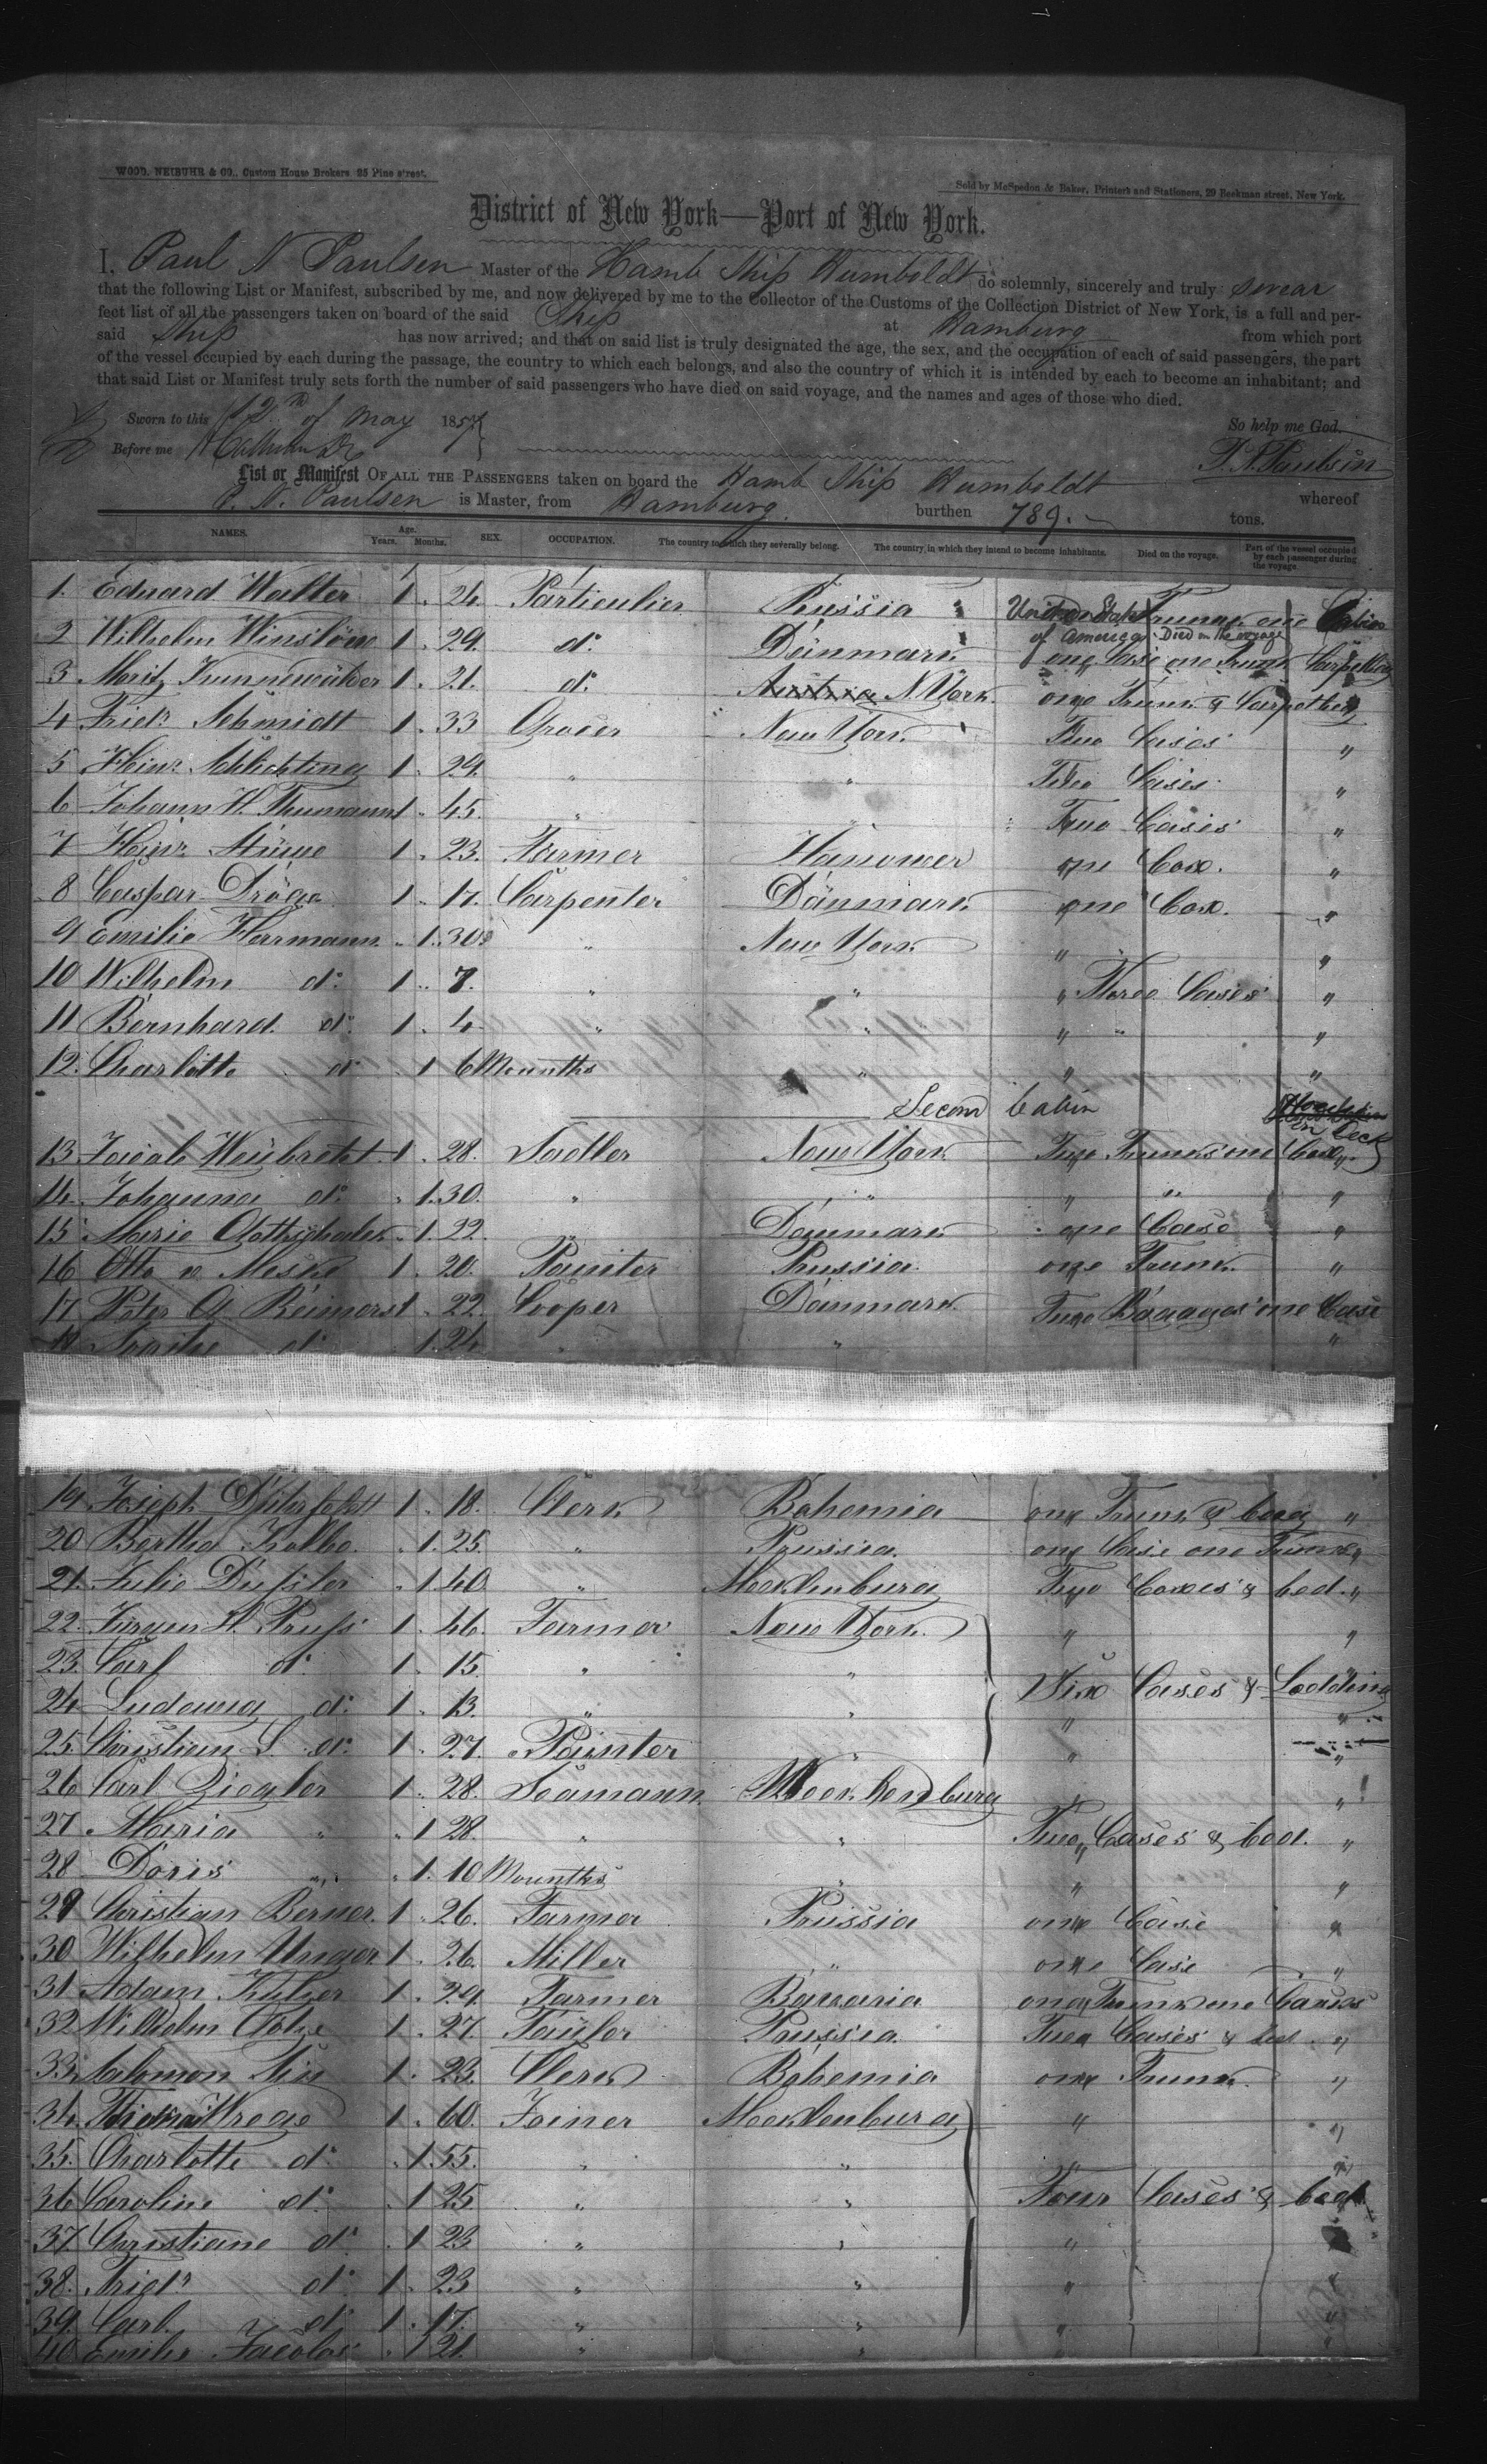 WOOD, NEIBUHR & CO., Custom House Brokers 25 Pine street.
Sold by McSpedon & Baker, Printers and Stationers, 29 Beekman street, New York.
District of New York—Port of New York.
I, Paul N Paulsen Master of the Hamb Ship Humboldt do solemnly, sincerely and truly swear
that the following List or Manifest, subscribed by me, and now delivered by me to the Collector of the Customs of the Collection District of New York, is a full and per-
fect list of all the passengers taken on board of the said Ship at Hamburg from which port
said Ship has now arrived; and that on said list is truly designated the age, the sex, and the occupation of each of said passengers, the part
of the vessel occupied by each during the passage, the country to which each belongs, and also the country of which it is intended by each to become an inhabitant; and
that said List or Manifest truly sets forth the number of said passengers who have died on said voyage, and the names and ages of those who died.
Sworn to this 12th of May 1857 So help me God.
Before me P. N. Paulsen
List or Manifest OF ALL THE PASSENGERS taken on board the Hamb Ship Humboldt whereof
P. N. Paulsen is Master, from Hamburg burthen 789. tons.
NAMES. Age. Years. Months. SEX. OCCUPATION. The country to which they severally belong. The country in which they intend to become inhabitants. Died on the voyage. Part of the vessel occupied by each passenger during the voyage.
1. Eduard Walter 1 . 24. Particulier Prussia United States Trunk one Cabin
of America Died on the voyage
2 Wilhelm Winslöw 1 . 29. do Dänmark one Case one Trunk
3 Moritz 1 . 21. do Austria N. York. one Trunk &
4 Friedr Schmidt 1 . 33 Grocer New York Two Cases "
5 Heinr Schlichting 1 . 29. " " Two Cases "
6 Johann H. Thumann 1 . 45. " Two Cases "
7 Heinr Stüwe 1 . 23. Farmer Hanower one Box. "
8 Caspar Dröge 1 . 17. Carpenter Dänmark one Box. "
9 Emilie Herrmann . 1. 30. " New York " "
10 Wilhelm do 1 . 7. " " " Three Cases "
11 Bernhard do 1 . 4. " " " " "
12. Charlotte do . 1 6 Mounths " " "
Second Cabin
13 Jacob Weibrecht 1 . 28. Sadler New York Two Trunks one Box "
14. Johanna do . 1. 30. " " " " "
15 Marie Gottschalck . 1. 22. " Dänmark one Case "
16 Otto v. Meske 1 . 20. Painter Prussia one Trunk "
17 Peter A. Reimers 1 . 22. Cooper Dänmark Two Baggages one Case
18 Sophie do 1. 24. " " "
19 Joseph 1 . 18. Clerk Bohemia one Trunk & bag "
20 Bertha Kolbe . 1. 25. " Prussia. one Case one Trunk "
21. Julie Dussler . 1. 40. " Mecklenburg Two Boxes & bed. "
22. Jürgen H. Pruss 1 . 46. Farmer New York " "
23. Carl do 1 . 15. " " Six Cases & Bedding
24 Ludewig do 1 . 13. " " " "
25. Christian L. do 1 . 27. Painter " " "
26 Carl Ziegler 1 . 28. Seamann Mecklenburg " "
27 Maria " . 1 28. " " Two Cases & bed. "
28 Doris " . 1. 10 Mounths " " "
29 Christian Berner. 1 . 26. Farmer Prussia one Case "
30 Wilhelm Unger 1 . 26. Miller " one Case "
31 Adam 1 . 29. Farmer Bavaria one Trunk one
32 Wilhelm 1 . 27. Taylor Prussia. Two Cases & bed "
33. Salomon 1 . 23. Clerk Bohemia one Trunk "
34. 1 . 60. Joiner Mecklenburg " "
35. Charlotte do . 1. 55. " " " "
36 Caroline do . 1 25. " " Four Cases & bed
37 Christiane do . 1 23 " " "
38. Friedr do 1 . 23 " " " "
39. Carl do 1 . 17. " " " "
40 Emilie Jacobs . 1 21. " " " "